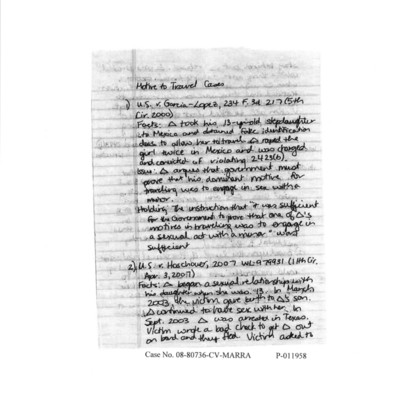 Motive to Travel Cases
1) U.S. v. Garcia-Lopez, 234 F.3d 217 (5th
Cir. 2000)
Facts: Δ took his 13-yr-old stepdaughter
to Mexico and obtained fake identification
docs to allow her to travel. Δ raped the
girl twice in Mexico and was charged
and convicted of violating 2423(b).
Issue: Δ argues that government must
prove that his dominant motive for
travelling was to engage in sex with a
minor.
Holding: The instruction that "it was sufficient
for the Government to prove that one of Δ's
motives in travelling was to engage in
a sexual act with a minor" was
sufficient
2) U.S. v. Hoschouer, 2007 WL 979931 (11th Cir.
Apr. 3, 2007)
Facts: Δ began a sexual relationship with
his daughter when she was 13. In March
2003, the victim gave birth to Δ's son.
Δ continued to have sex with her. In
Sept. 2003 Δ was arrested in Texas.
Victim wrote a bad check to get Δ out
on bond and they fled. Victim asked to
Case No. 08-80736-CV-MARRA P-011958